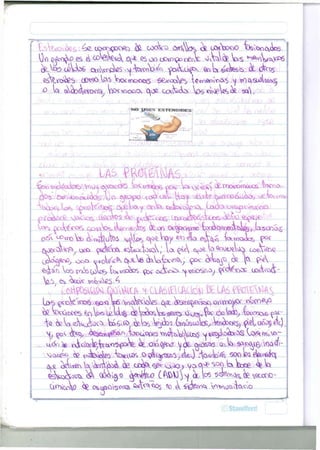 Esteroides: Se componen de cuatro anillos de carbono fusionados
Un ejemplo es el colesterol q+ es un componente vital de las membranas
de las células animales y también participa en la síntesis de otros
esteroides como las hormonas sexuales femeninas y masculinas
o la aldosterona, hormona que controla los niveles de sal.
NO USES ESTEROIDES
LAS PROTEÍNAS
Son moléculas muy grandes formadas por la unión de monómeros llama-
dos aminoácidos. Un grupo
todas las proteínas
produce varios cientos de proteínas características de la especie
Las proteínas son los elementos de un organismo fundamentales, las uñas
así como los diminutos vellos que hay en ella están formados por
queratina, una proteína estructural, la piel que lo envuelve contiene
colágeno, una proteína que le da la forma, por debajo de la piel
están los músculos formados por actina y miosina, proteínas contrácti-
les, es decir móviles
COMPOSICIÓN QUÍMICA Y CLASIFICACIÓN DE LAS PROTEÍNAS
Las proteínas son los materiales que desempeñan un mayor número
de funciones en las células de todos los seres vivos. Por un lado, forman par-
te de la estructura básica de los tejidos (músculos, tendones, piel, uñas, etc)
y, por otro, desempeñan funciones metabólicas y reguladoras (asimila-
ción de nutrientes, transporte de oxígeno y de grasas en la sangre, inacti-
vación de materiales tóxicos o peligrosos, etc.) También son los elementos
que definen la identidad de cada ser vivo, ya q+ son la base de la
estructura del código genético (ADN) y de los sistemas de recono-
cimiento de organismos extraños en el sistema inmunitario
Stanford